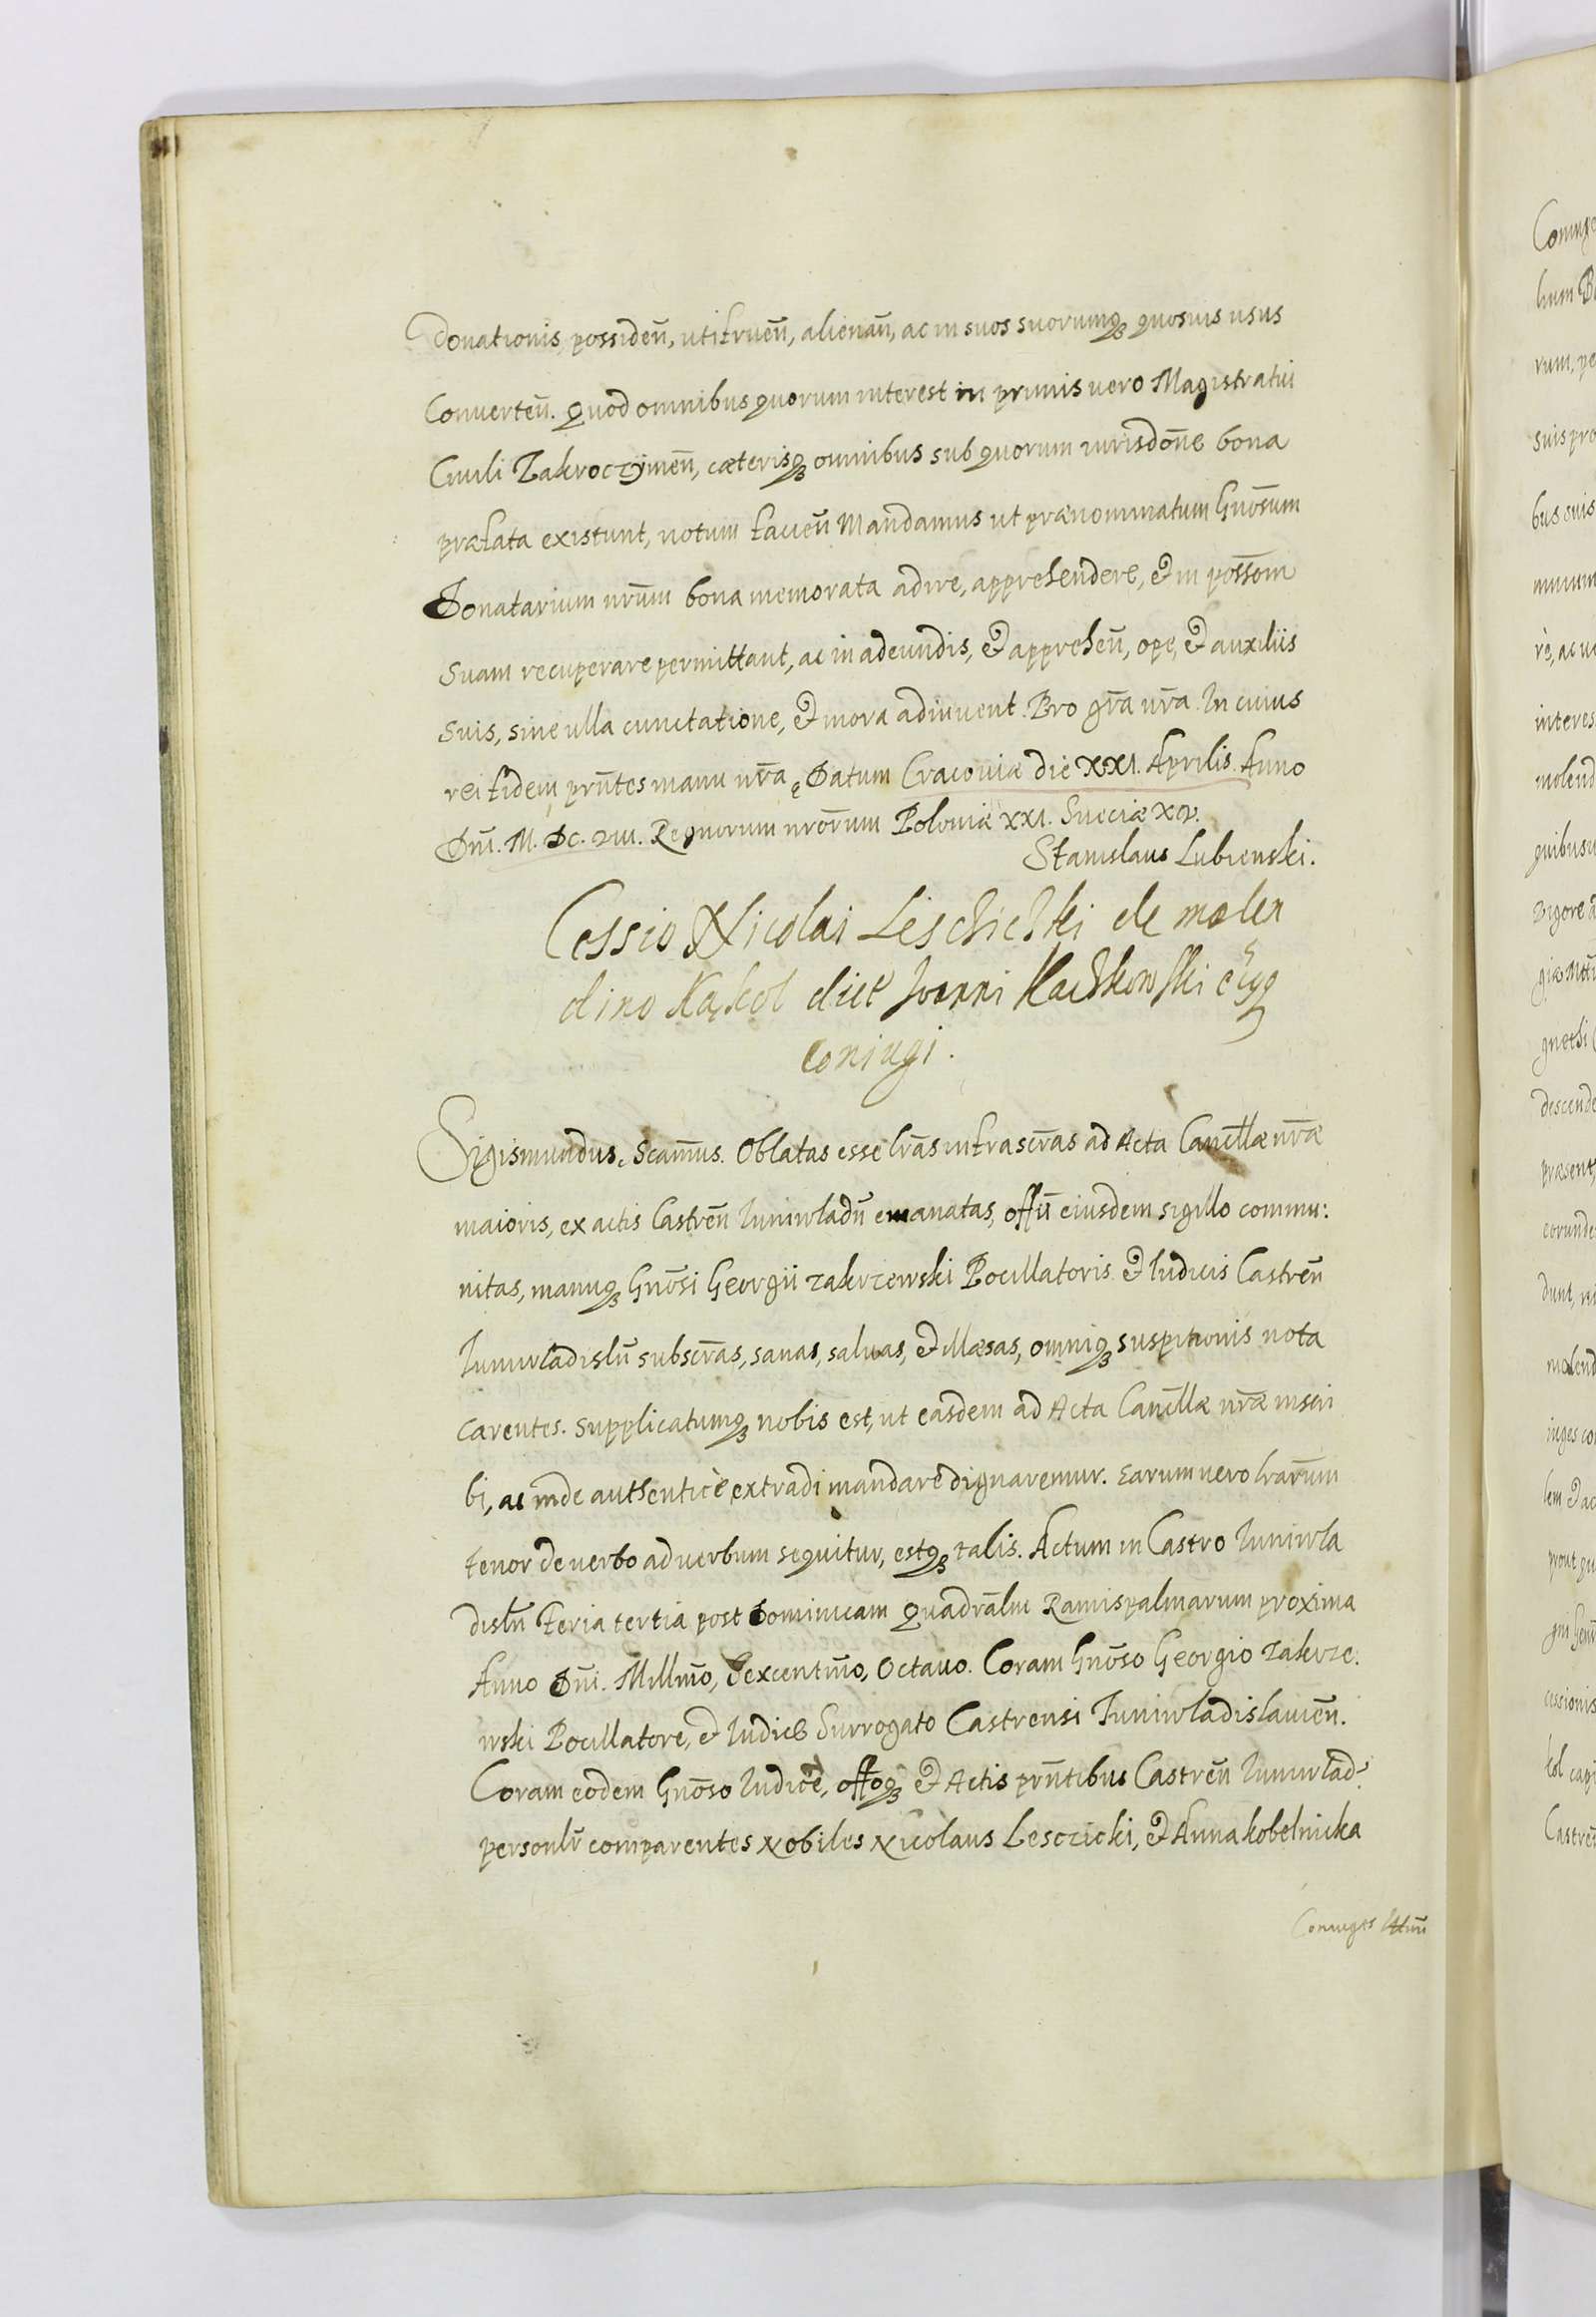 donationis possideñ, utifrueñ, alienañ, ac in suos suorumq̃ quosuis usus
Conuerteñ. Quod omnibus quorum interest in primis uero Magistratui
Ciuili Zakroczÿmeñ, cæterisq̃ omnibus sub quorum iurisdoñe bona
præfata existunt, notum facieñ Mandamus ut prænominatum Gnõsum
Donatarium nrũm bona memorata adire, apprehendere, et in possõm
suam recuperare permittant, ac in adeundis, et apprehẽn, ope, et auxilijs
suis, sine ulla cunctatione, et mora adiuuent. Pro gr̃a nr̃a. In cuius
rei fidem prñtes manu nr̃a. Datum Cracouiæ die XXI. Aprilis. Anno
Dñi. M. DC. VIII. Regnorum nrõrum Poloniæ XXI. Sueciæ XV.
Stanislaus Lubienski.
Cessio Nicolai Leschichki de molen
dino Kąkol dict Joanni Kaczkowski eiusq̃
coniugi.
Sigismundus. Scãmus. Oblatas esse lr̃as infrascr̃as ad Acta Canc̃llæ nr̃æ
maioris, ex actis Castreñ Iuniwladñ emanatas, offii eiusdem sigillo commu:
nitas, manuq̃ Gnõsi Georgii Zakrzewski Pocillatoris et Iudicis Castreñ
Iuniwladislñ subscr̃as, sanas, saluas, et illæsas, omniq̃ suspitionis nota
carentes. Supplicatumq̃ nobis est, ut easdem ad Acta Canc̃llæ nr̃æ inscri
bi, ac inde authenticè extradi mandare dignaremur. Earum uero lrãrum
tenor de uerbo ad uerbum sequitur, estq̃ talis. Actum in Castro Iuniwla
dislñ feria tertia post Dominicam Quadrãlm Ramispalmarum proxima
Anno Dñi. Millmõ, Sexcentmõ, Octauo. Coram Gnõso Georgio Zakrze:
wski Pocillatore, et Iudice Surrogato Castrensi Iuniwladislauieñ.
Coram eodem Gnõso Iudice, offoq̃ et Actis prñtibus Castreñ Iuniwlad:
personlr̃ comparentes Nobiles Nicolaus Lesczicki, et Anna Kobelnicka
Coniuges